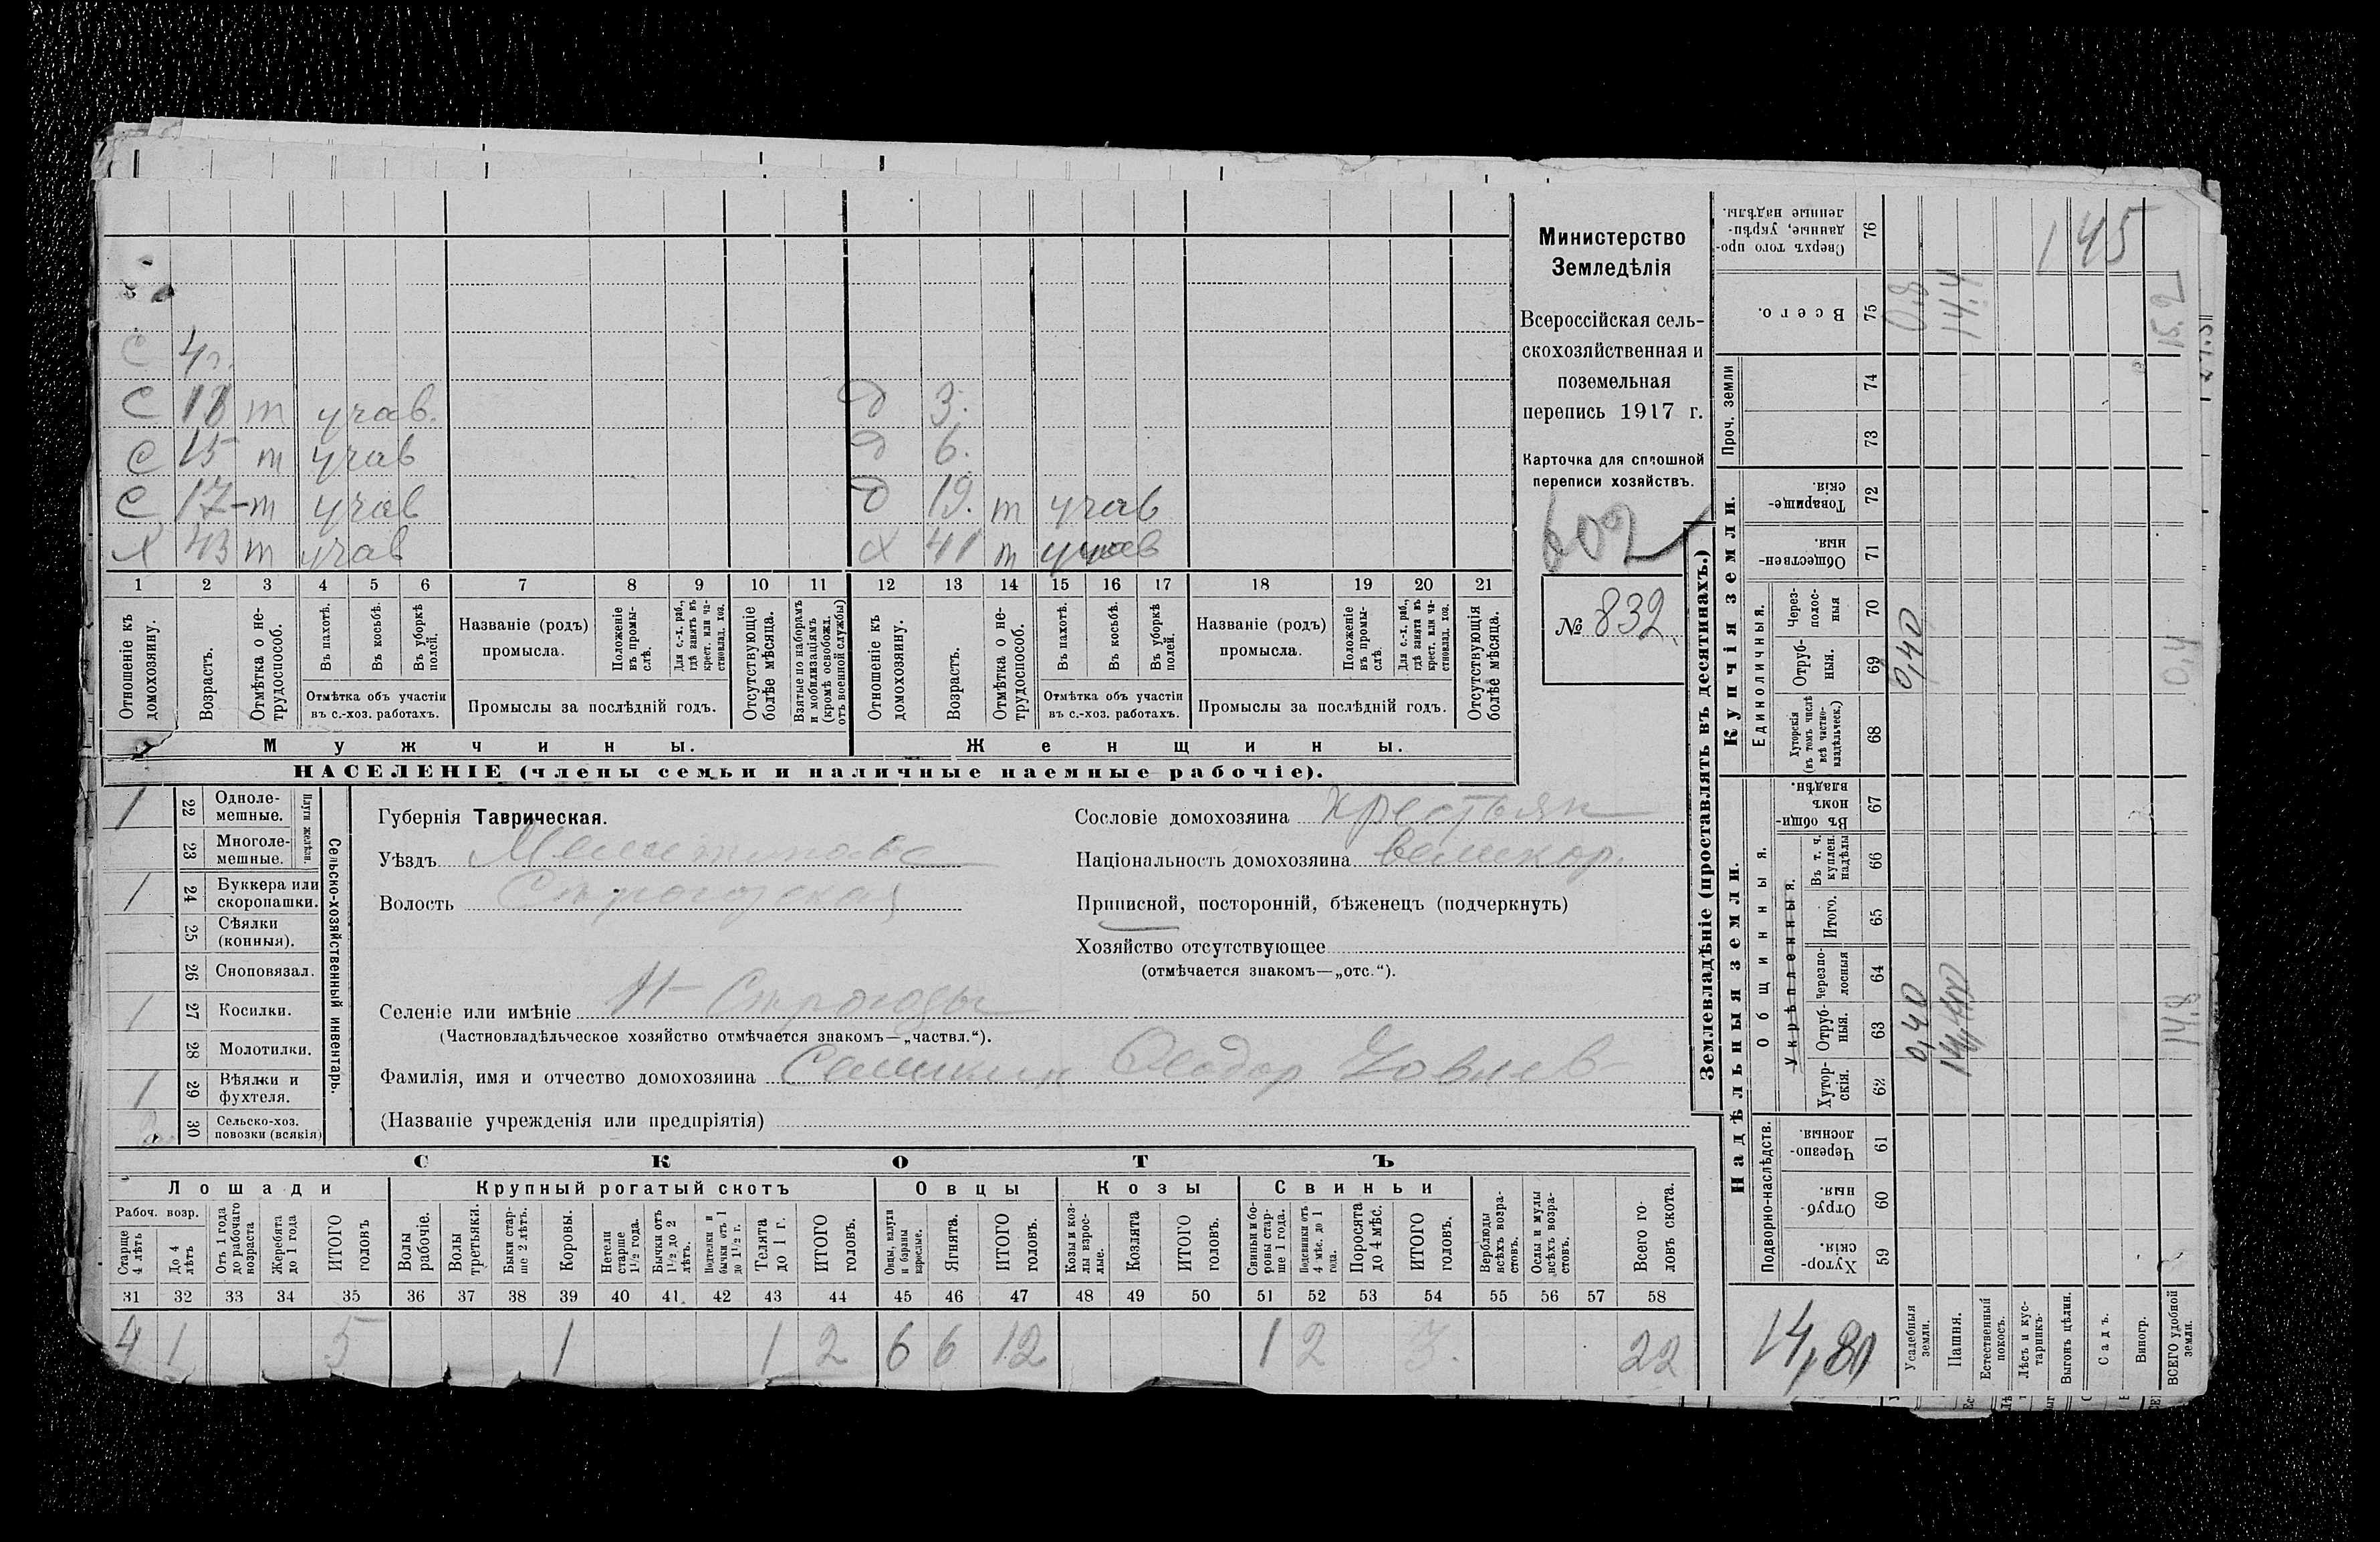 С 4 г.
С 18 т учав. д 3.
С 15 т учав д 6.
С 17 - т учав д 19. т учав
Х 43 т учав х 41 т учав
1 2 3 4 5 6 7 8 9 10 11 12 13 14 15 16 17 18 19 20 21
Отношеніе къ домохозяину.
Возрастъ.
Отмѣтка о не-трудоспособ.
Въ пахотѣ.
Въ косьбѣ.
Въ уборкѣ полей.
Отмѣтка объ участіи
въ с.-хоз. работахъ.
Названіе (родъ)
промысла.
Положеніе въ промы-слѣ.
Для с.-х. раб., гдѣ занятъ въ крест. или ча-стновлад. хоз.
Промыслы за послѣдній годъ.
Отсутствующіе болѣе мѣсяца.
Взятые по наборамъ и мобилизаціямъ (кромѣ освобожд. отъ военной службы)
Отношеніе къ домохозяину.
Возрастъ.
Отмѣтка о не-трудоспособ.
Въ пахотѣ.
Въ косьбѣ.
Въ уборкѣ полей.
Отмѣтка объ участіи
въ с.-хоз. работахъ.
Названіе (родъ)
промысла.
Положеніе въ промы-слѣ.
Для с.-х. раб., гдѣ занята въ крест. или ча-стновлад. хоз.
Промыслы за послѣдній годъ.
Отсутствующія болѣе мѣсяца.
Мужчины. Женщины.
НАСЕЛЕНІЕ (члены семьи и наличные наемные рабочіе).
Министерство
Земледѣлія
Всероссійская сель-
скохозяйственная и
поземельная
перепись 1917 г.
Карточка для сплошной
переписи хозяйствъ.
602
№ 832
Сельско-хозяйственный инвентарь.
Плуги желѣзн.
1 22 Однолемешные.
23 Многолемешные.
1 24 Буккера или скоропашки.
25 Сѣялки (конныя).
26 Сноповязал.
1 27 Косилки.
28 Молотилки.
1 29 Вѣялки и фухтеля.
30 Сельско-хоз. повозки (всякія)
Губернія Таврическая.
Уѣздъ
Волость Строгозская
Селеніе или имѣніе Н Строгозы
(Частновладѣльческое хозяйство отмѣчается знакомъ—„частвл.“).
Фамилія, имя и отчество домохозяина Феодор
(Названіе учрежденія или предпріятія)
Сословіе домохозяина крестьян
Національность домохозяина великор.
Приписной, посторонній, бѣженецъ (подчеркнуть)
Хозяйство отсутствующее
(отмѣчается знакомъ—„отс.“).
СКОТЪ
Лошади Крупный рогатый скотъ Овцы Козы Свиньи
Рабоч. возр.
Старше 4 лѣтъ
До 4 лѣтъ
Отъ 1 года до рабочаго возраста
Жеребята до 1 года
ИТОГО головъ
Волы рабочіе.
Волы третьяки.
Быки стар-ше 2 лѣтъ.
Коровы.
Нетели старше 1½ года.
Бычки отъ 1½ до 2 лѣтъ.
Подтелки и бычки отъ 1 до 1½ г.
Телята до 1 г.
ИТОГО головъ.
Овцы, валухи и бараны взрослые.
Ягнята.
ИТОГО головъ.
Козы и коз-лы взрос-лые.
Козлята
ИТОГО головъ.
Свиньи и бо-ровы стар-ше 1 года.
Подсвинки отъ 4 мѣс. до 1 года.
Поросята до 4 мѣс.
ИТОГО головъ.
Верблюды всѣхъ возра-стовъ.
Ослы и мулы всѣхъ возра-стовъ.
Всего го-ловъ скота.
31 32 33 34 35 36 37 38 39 40 41 42 43 44 45 46 47 48 49 50 51 52 53 54 55 56 57 58
4 1 5 1 1 2 6 6 12 1 2 3. 22
Землевладѣніе (проставлять въ десятинахъ.)
Надѣльныя земли. Купчія земли.
Подворно-наслѣдств.
Общинныя.
Укрѣпленныя.
Единоличныя.
Проч. земли
Хутор-скія. 59
Отруб-ныя. 60
Черезпо-лосныя. 61
Хутор-скія. 62
Отруб-ныя. 63
Черезпо-лосныя 64
Итого. 65
Въ т. ч. куплен. надѣлы 66
Въ общин-номъ владѣн. 67
Хуторскія (въ томъ числѣ всѣ частно-владѣльческ.) 68
Отруб-ныя. 69
Через-полос-ныя 70
Обществен-ныя. 71
Товарище-скія. 72
73
74
Всего. 75
Сверхъ того про-данные, укрѣп-ленные надѣлы. 76
14,80
Усадебныя земли. 0,40 0,40 0,8
Пашня. 14,40 14,4
Естественный покосъ.
Лѣсъ и кус-тарникъ.
Выгонъ цѣлин.
Садъ.
Виногр.
ВСЕГО удобной земли. 14,8 0,4 15.2
145